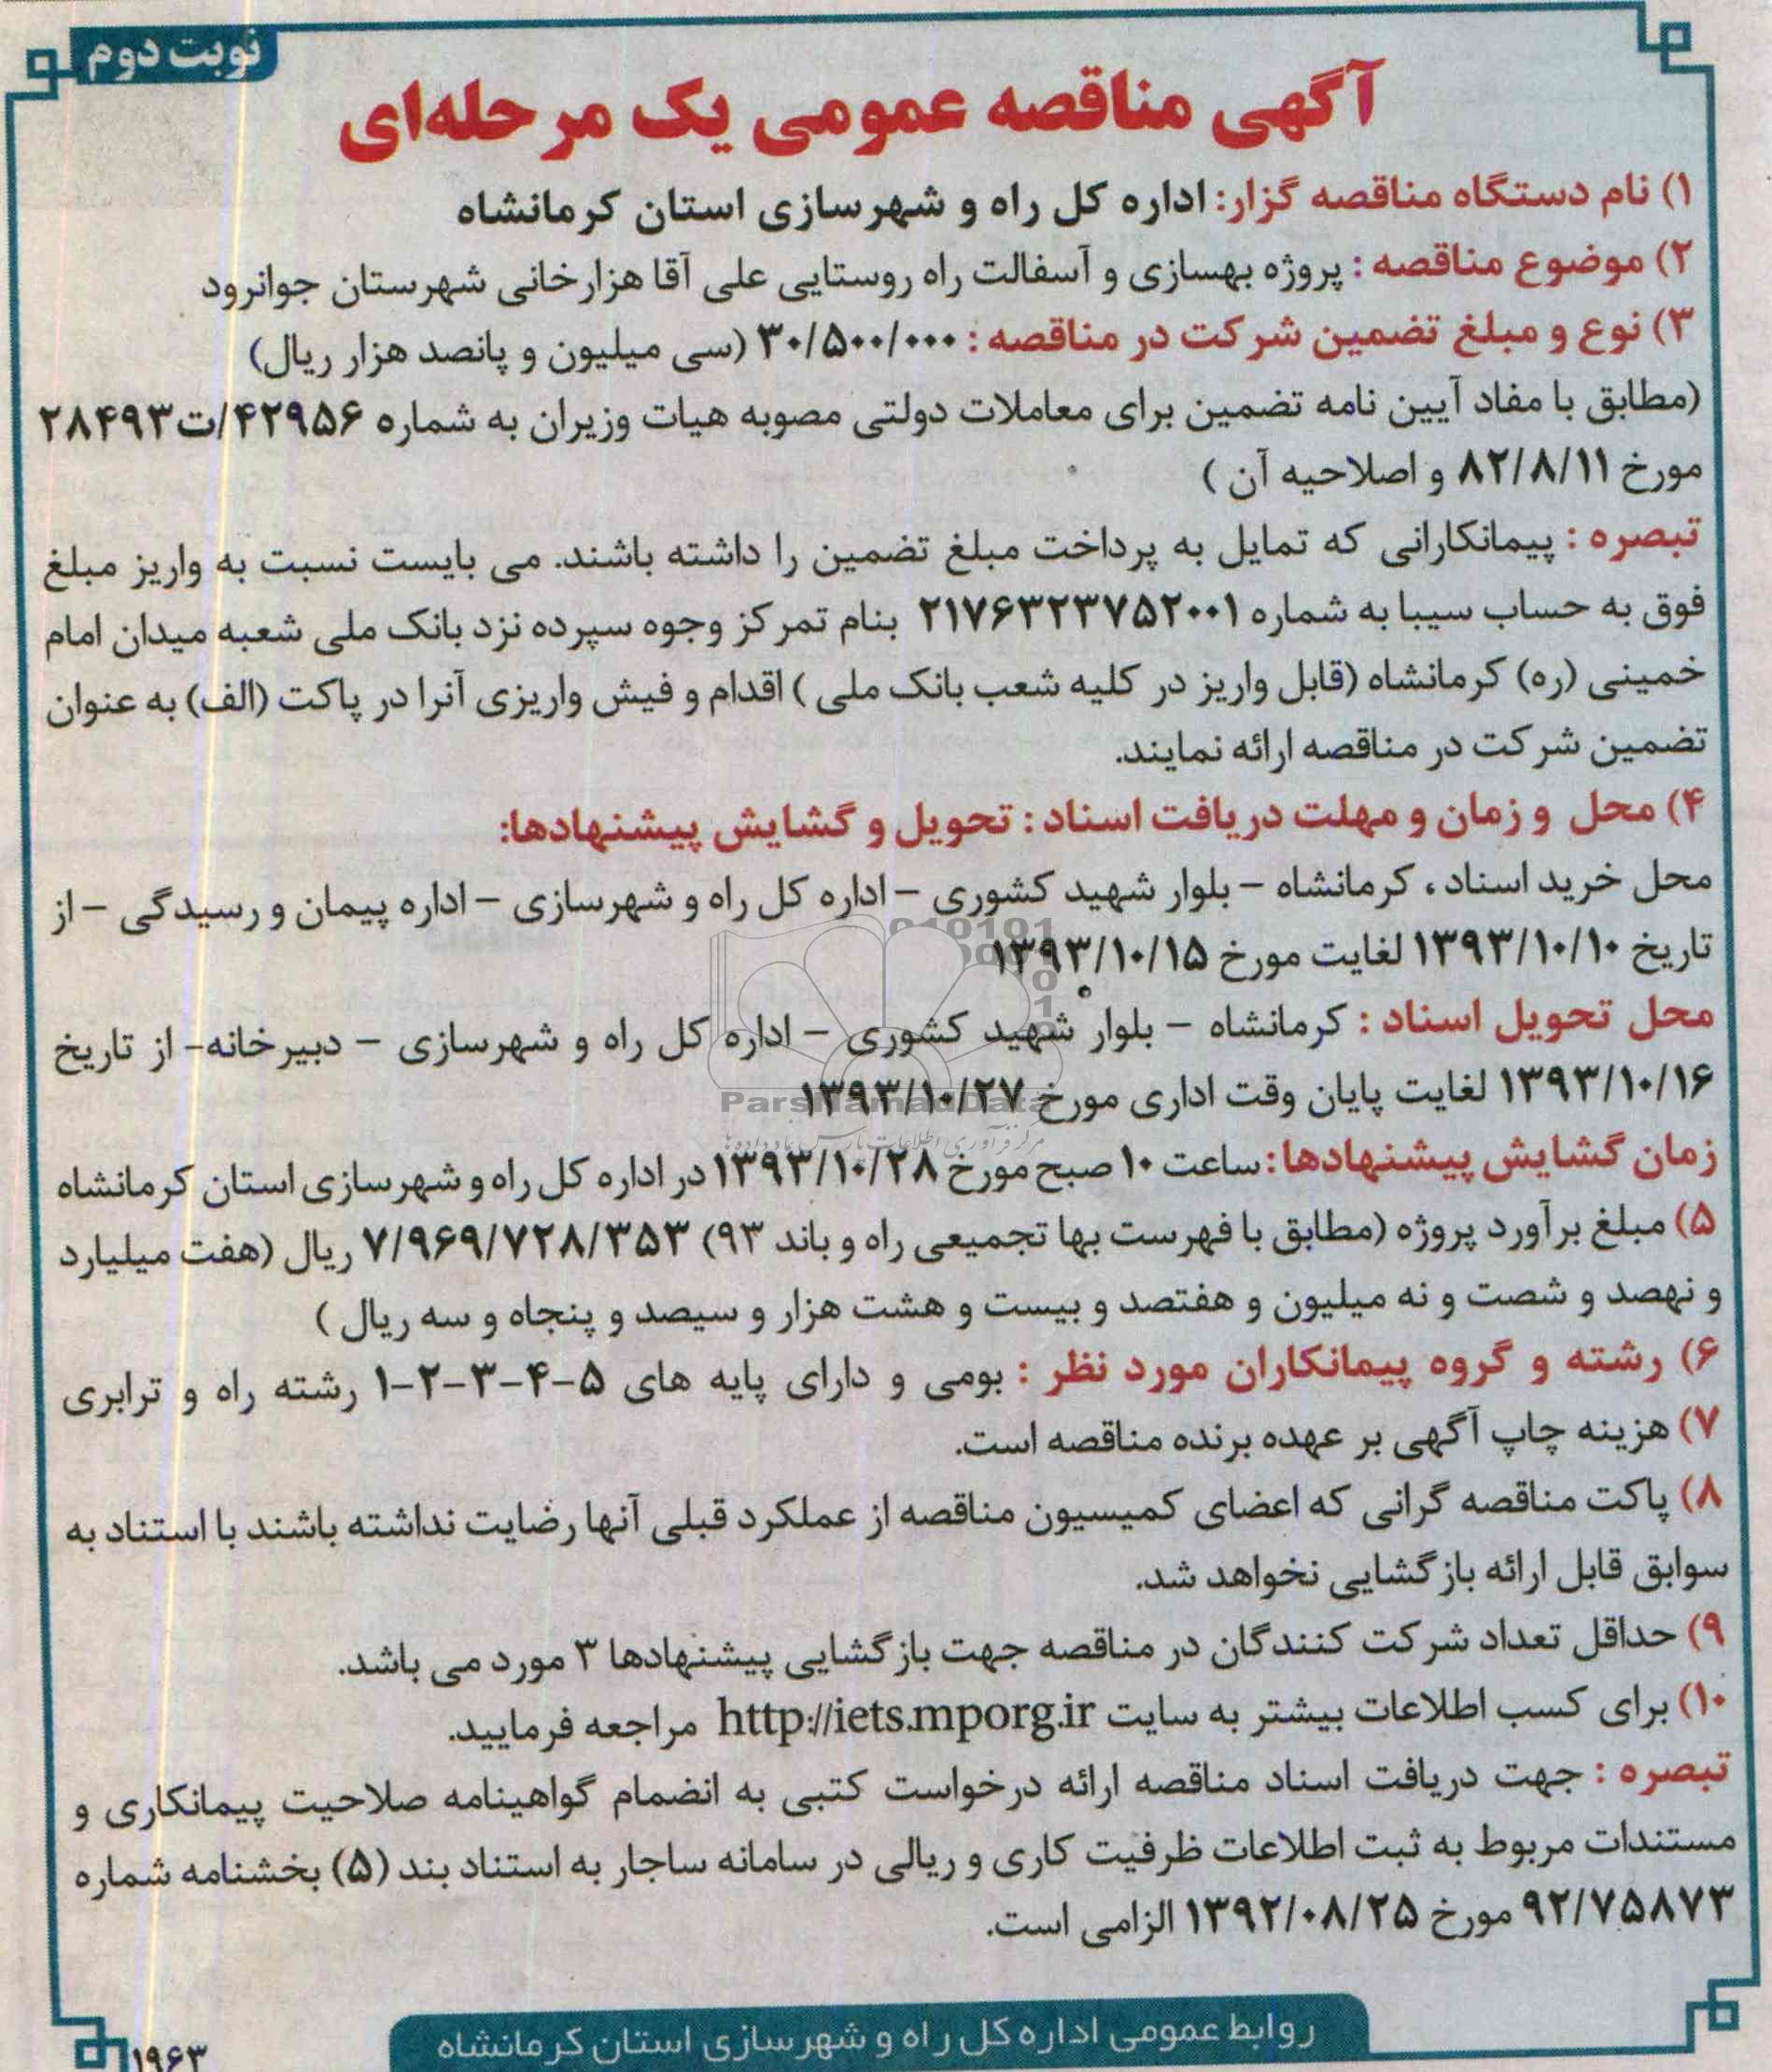 نوبت دوم
آگهی مناقصه عمومی یک مرحله‌ای
۱) نام دستگاه مناقصه گزار: اداره کل راه و شهرسازی استان کرمانشاه
۲) موضوع مناقصه : پروژه بهسازی و آسفالت راه روستایی علی آقا هزارخانی شهرستان جوانرود
۳) نوع و مبلغ تضمین شرکت در مناقصه : ۳۰/۵۰۰/۰۰۰ (سی میلیون و پانصد هزار ریال)
(مطابق با مفاد آیین نامه تضمین برای معاملات دولتی مصوبه هیات وزیران به شماره ۴۲۹۵۶/ت۲۸۴۹۳
مورخ ۸۲/۸/۱۱ و اصلاحیه آن )
تبصره : پیمانکارانی که تمایل به پرداخت مبلغ تضمین را داشته باشند. می بایست نسبت به واریز مبلغ
فوق به حساب سیبا به شماره ۲۱۷۶۳۲۳۷۵۲۰۰۱ بنام تمرکز وجوه سپرده نزد بانک ملی شعبه میدان امام
خمینی (ره) کرمانشاه (قابل واریز در کلیه شعب بانک ملی ) اقدام و فیش واریزی آنرا در پاکت (الف) به عنوان
تضمین شرکت در مناقصه ارائه نمایند.
۴) محل و زمان و مهلت دریافت اسناد : تحویل و گشایش پیشنهادها:
محل خرید اسناد ، کرمانشاه – بلوار شهید کشوری – اداره کل راه و شهرسازی – اداره پیمان و رسیدگی – از
تاریخ ۱۳۹۳/۱۰/۱۰ لغایت مورخ ۱۳۹۳/۱۰/۱۵
محل تحویل اسناد : کرمانشاه – بلوار شهید کشوری – اداره کل راه و شهرسازی – دبیرخانه- از تاریخ
۱۳۹۳/۱۰/۱۶ لغایت پایان وقت اداری مورخ ۱۳۹۳/۱۰/۲۷
ParsNamadData
مرکز فرآوری اطلاعات پارس نماد داده‌ها
زمان گشایش پیشنهادها: ساعت ۱۰ صبح مورخ ۱۳۹۳/۱۰/۲۸ در اداره کل راه و شهرسازی استان کرمانشاه
۵) مبلغ برآورد پروژه (مطابق با فهرست بها تجمیعی راه و باند ۹۳) ۷/۹۶۹/۷۲۸/۳۵۳ ریال (هفت میلیارد
و نهصد و شصت و نه میلیون و هفتصد و بیست و هشت هزار و سیصد و پنجاه و سه ریال )
۶) رشته و گروه پیمانکاران مورد نظر : بومی و دارای پایه های ۵-۴-۳-۲-۱ رشته راه و ترابری
۷) هزینه چاپ آگهی بر عهده برنده مناقصه است.
۸) پاکت مناقصه گرانی که اعضای کمیسیون مناقصه از عملکرد قبلی آنها رضایت نداشته باشند با استناد به
سوابق قابل ارائه بازگشایی نخواهد شد.
۹) حداقل تعداد شرکت کنندگان در مناقصه جهت بازگشایی پیشنهادها ۳ مورد می باشد.
۱۰) برای کسب اطلاعات بیشتر به سایت http://iets.mporg.ir مراجعه فرمایید.
تبصره : جهت دریافت اسناد مناقصه ارائه درخواست کتبی به انضمام گواهینامه صلاحیت پیمانکاری و
مستندات مربوط به ثبت اطلاعات ظرفیت کاری و ریالی در سامانه ساجار به استناد بند (۵) بخشنامه شماره
۹۲/۷۵۸۷۳ مورخ ۱۳۹۲/۰۸/۲۵ الزامی است.
روابط عمومی اداره کل راه و شهرسازی استان کرمانشاه
۱۹۶۳